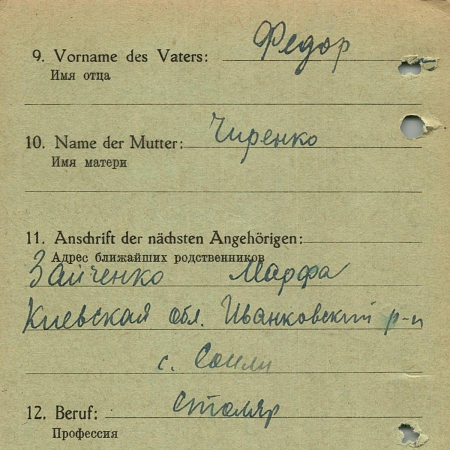 9. Vorname des Vaters: Федор
Имя отца
10. Name der Mutter: Чиренко
Имя матери
11. Anschrift der nächsten Angehörigen:
Адрес ближайших родственников
Зайченко Марфа
Киевская обл. Иванковский р-н
с.
12. Beruf: столяр
Профессия